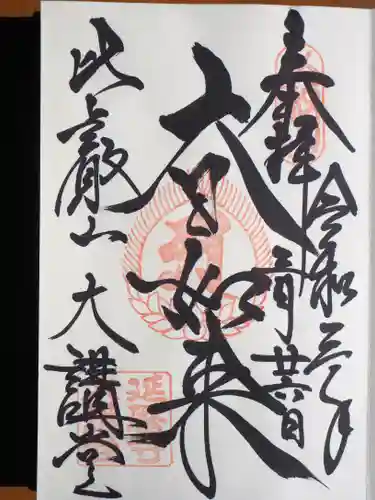 奉拝
令和三年
三月廿六日
大日如来
比叡山
大講堂
延暦寺